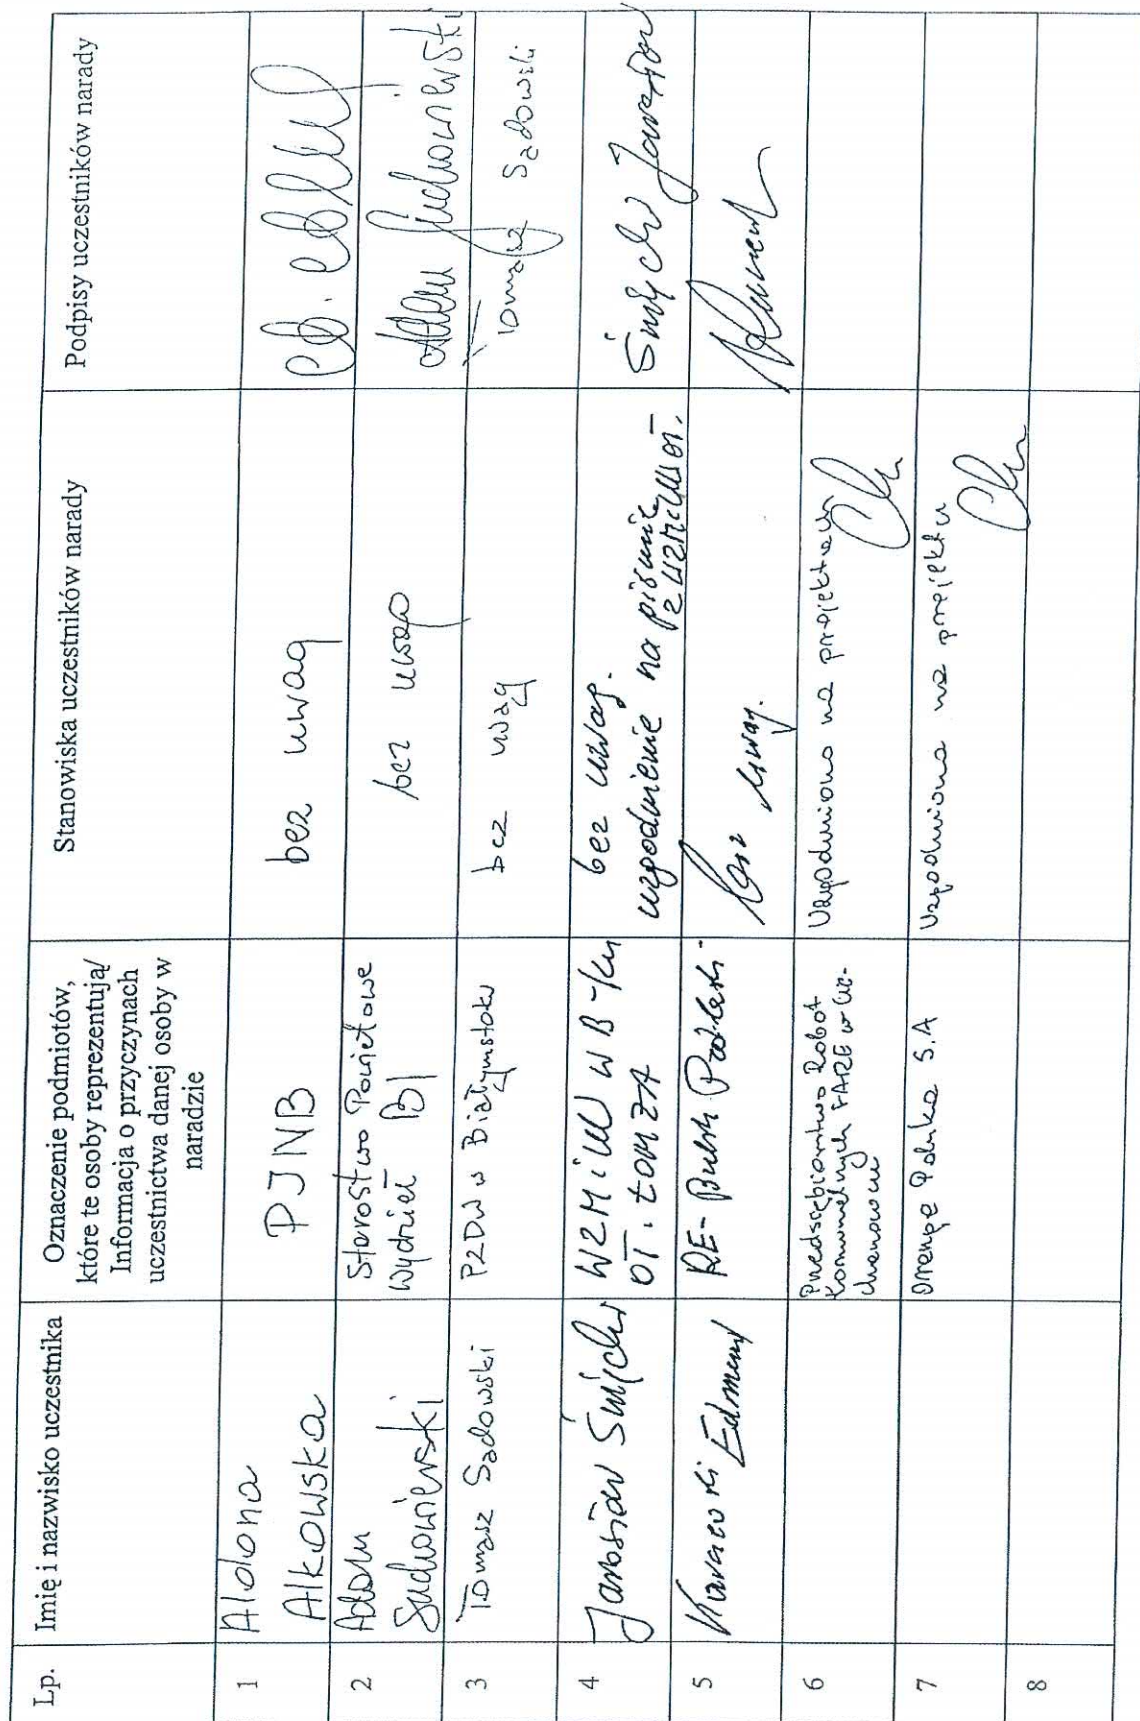 Lp.
Imię i nazwisko uczestnika
Oznaczenie podmiotów,
które te osoby reprezentują/
Informacja o przyczynach
uczestnictwa danej osoby w
naradzie
Stanowiska uczestników narady
Podpisy uczestników narady
1
Aldona
Alkowska
PJNB
bez uwag
2
Adam
Suchowierski
Starostwo Powiatowe
Wydział
bez uwag
Adam Suchowierski
3
Tomasz Sadowski
PZD w Białymstoku
bez uwag
Tomasz Sadowski
4
Jarosław
WZMiUW w B-ku
OT. ŁOMŻA
bez uwag.
uzgodnienie na piśmie
z WZMiUW OT.
Jarosław
5
Edmund
RE- Bielsk Podlaski
bez uwag.
6
Przedsiębiorstwo Robot
Komunalnych FARE w Cie-
chanowcu
Uzgodniono na projekcie
7
Orange Polska S.A
Uzgodniono na projekcie
8